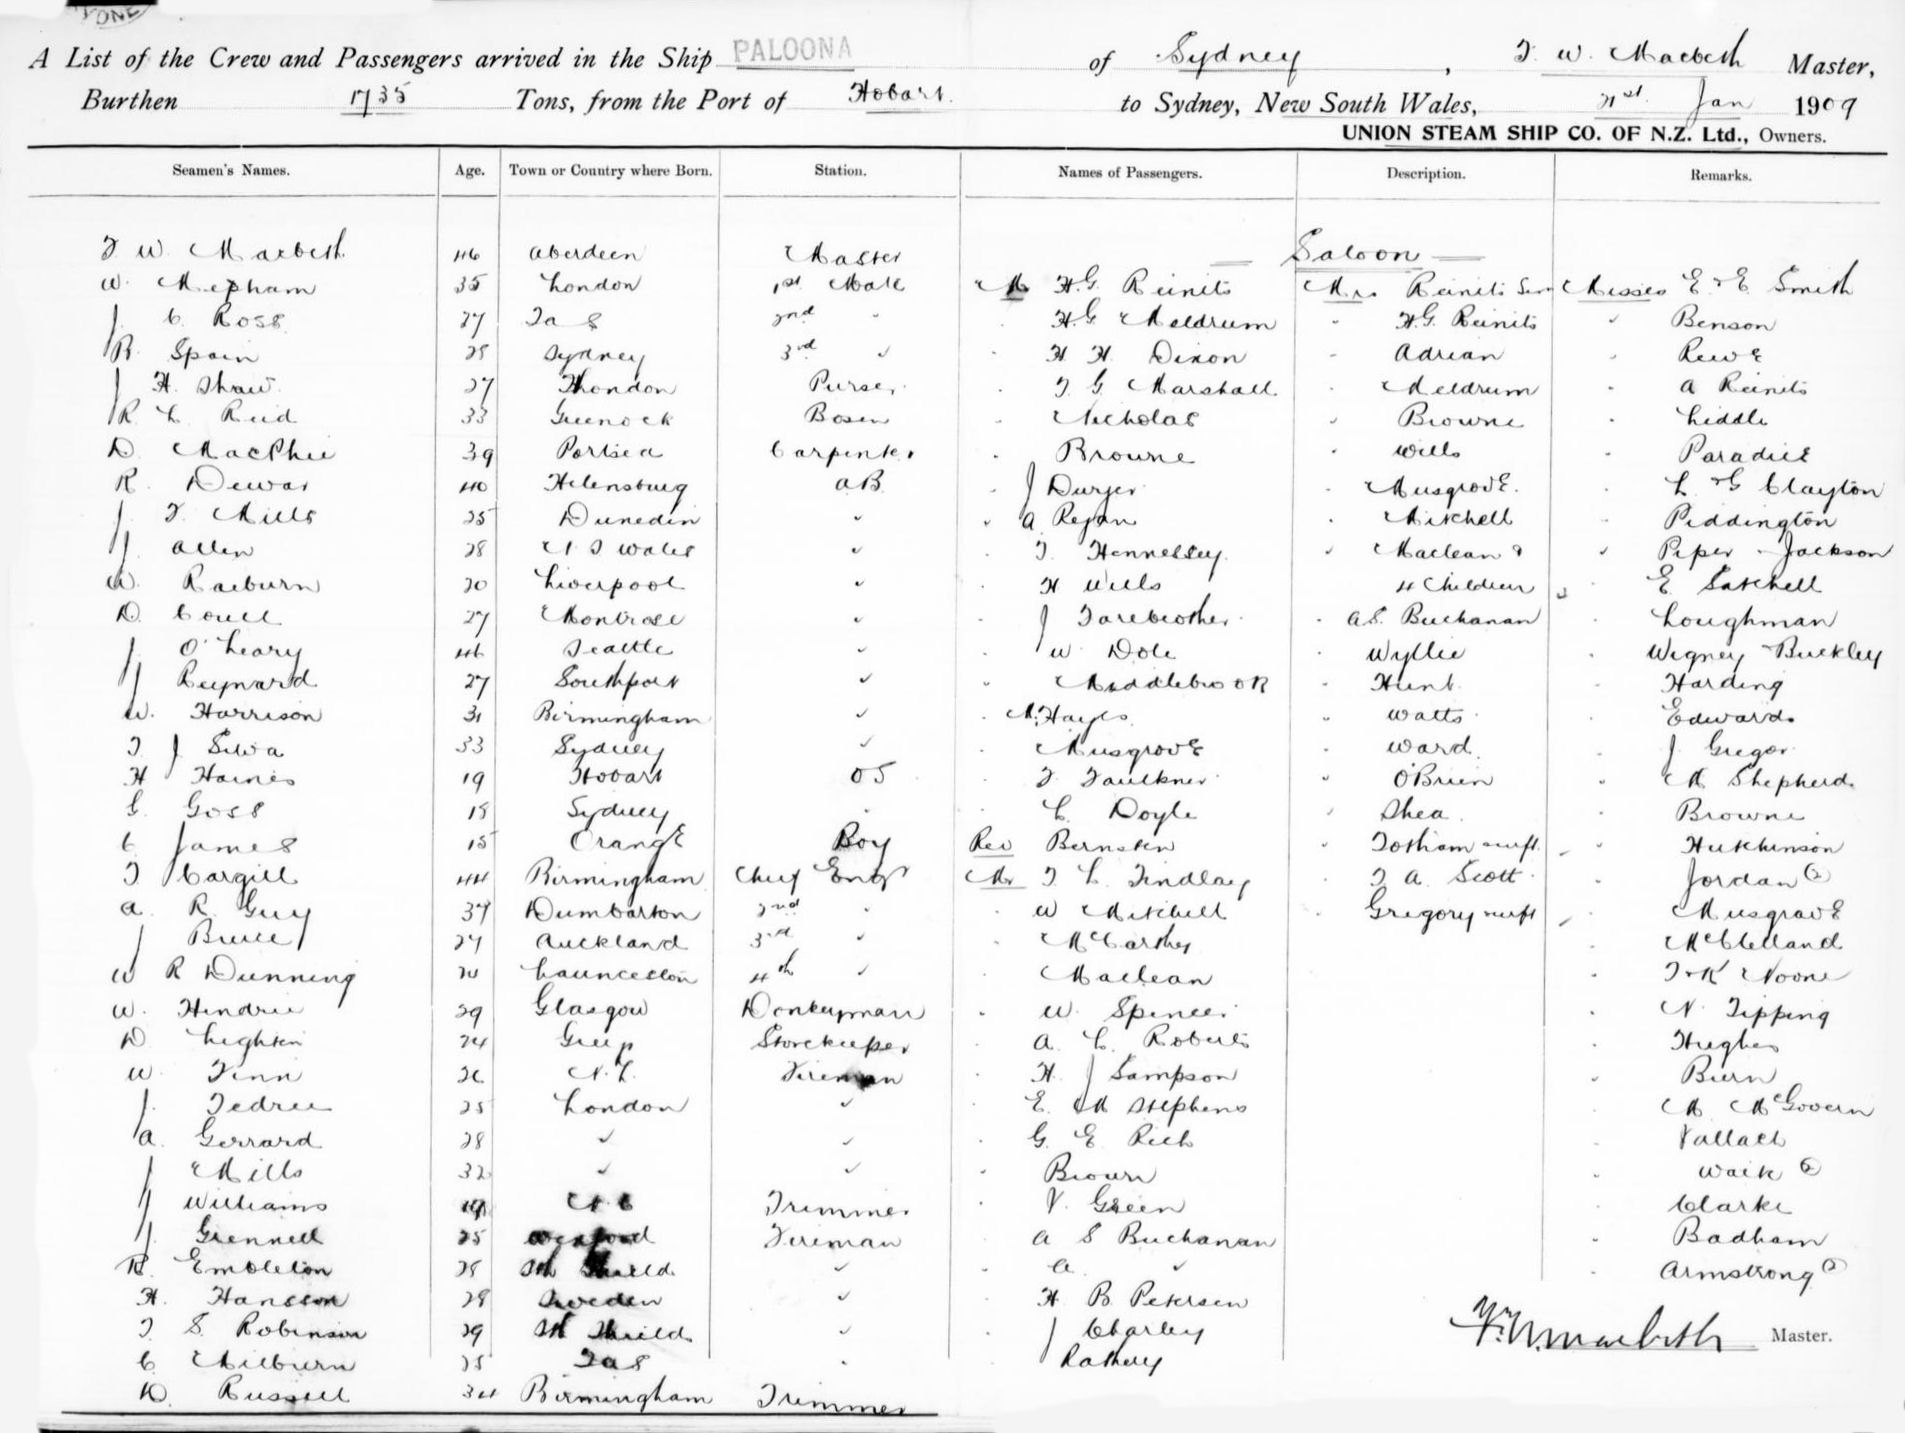 A List of the Crew and Passengers arrived in the Ship PALOONA of Sydney, T. W. Macbeth Master,
Burthen 1735 Tons, from the Port of Hobart to Sydney, New South Wales, 21st Jan 1909
UNION STEAM SHIP CO. OF N.Z. Ltd., Owners.
Seamen's Names. Age. Town or Country where Born. Station. Names of Passengers. Description. Remarks.
Saloon
T W. Macbeth 46 Aberdeen Master
W. Mepham 35 London 1st Mate M H.G. Reinits Mrs Reinits Sen Misses E & E Smith
C. Ross 27 Tas 2nd " H.G Meldrum " H.G. Reinits " Benson
R. Spain 28 Sydney 3rd " H H Dixon " Adrian " Rewe
J H. Shaw 27 London Purser T G. Marshall " Meldrum " A Reinits
R L Reid 33 Greenock Bosen Nicholas " Browne " Liddle
D. MacPhee 39 Portsea Carpenter Browne " Wills " Paradice
R. Dewar 40 Helensburg A.B. J Dwyer " Musgrove " L & G Clayton
J. T. Mills 25 Dunedin " A Regan " Mitchell " Piddington
J. Allen 28 N. S Wales " T. Hennessey " Maclean & " Piper - Jackson
W. Raeburn 20 Liverpool " H Wills 4 Children " E. Satchell
D. Coull 27 Montrose " J Farebrother " A.S. Buchanan " Loughman
J. O'Leary 46 Seattle " W. Dole " Wyllie " Wigney Buckley
J Reynard 27 Southport " Middlebrook " Hunt " Harding
W. Harrison 31 Birmingham " M. Hayes " Watts " Edwards
T. J Silva 33 Sydney " Musgrove " Ward " J Gregor
H Haines 19 Hobart OS T. Faulkner " O'Brien " M Shepherd
G. Goss 18 Sydney " C. Doyle " Shea " Browne
C. James 15 Orange Boy Rev Bernstein " Totham & inft " Hutchinson
T Cargill 44 Birmingham Chief Engr Mr T. C. Findlay " T A. Scott " Jordan
A. R. Guy 37 Dumbarton 2nd " W Mitchell " Gregory & inft " Musgrave
J Bruce 27 Auckland 3rd " McCarthy " McClelland
W R Dunning Launceston 4th " Maclean " T & K Noone
W. Hendrie 29 Glasgow Donkeyman " W. Spencer " N. Tipping
D. Leighton 24 Storekeeper A. C. Roberts " Hughes
W. Finn 26 N.Z. Fireman H. J Sampson
J. Tedree 25 London " E. M Stephens " M. McGovern
A. Gerrard 28 " " G. E. Rich " Vallach
J Mills 32 " " Brown
J Williams Trimmer V. Green " Clarke
J. Grennell 25 Wexford Fireman A S Buchanan " Badham
R. Embleton 28 Sth Shield " A. " " Armstrong
H. Hansson 28 Sweden " H. B. Petersen
T. S. Robinson 29 Sth Shields " J Charley
C. Milburn 25 Tas " Rathery
D. Russell 34 Birmingham Trimmer
T. W. Macbeth Master.